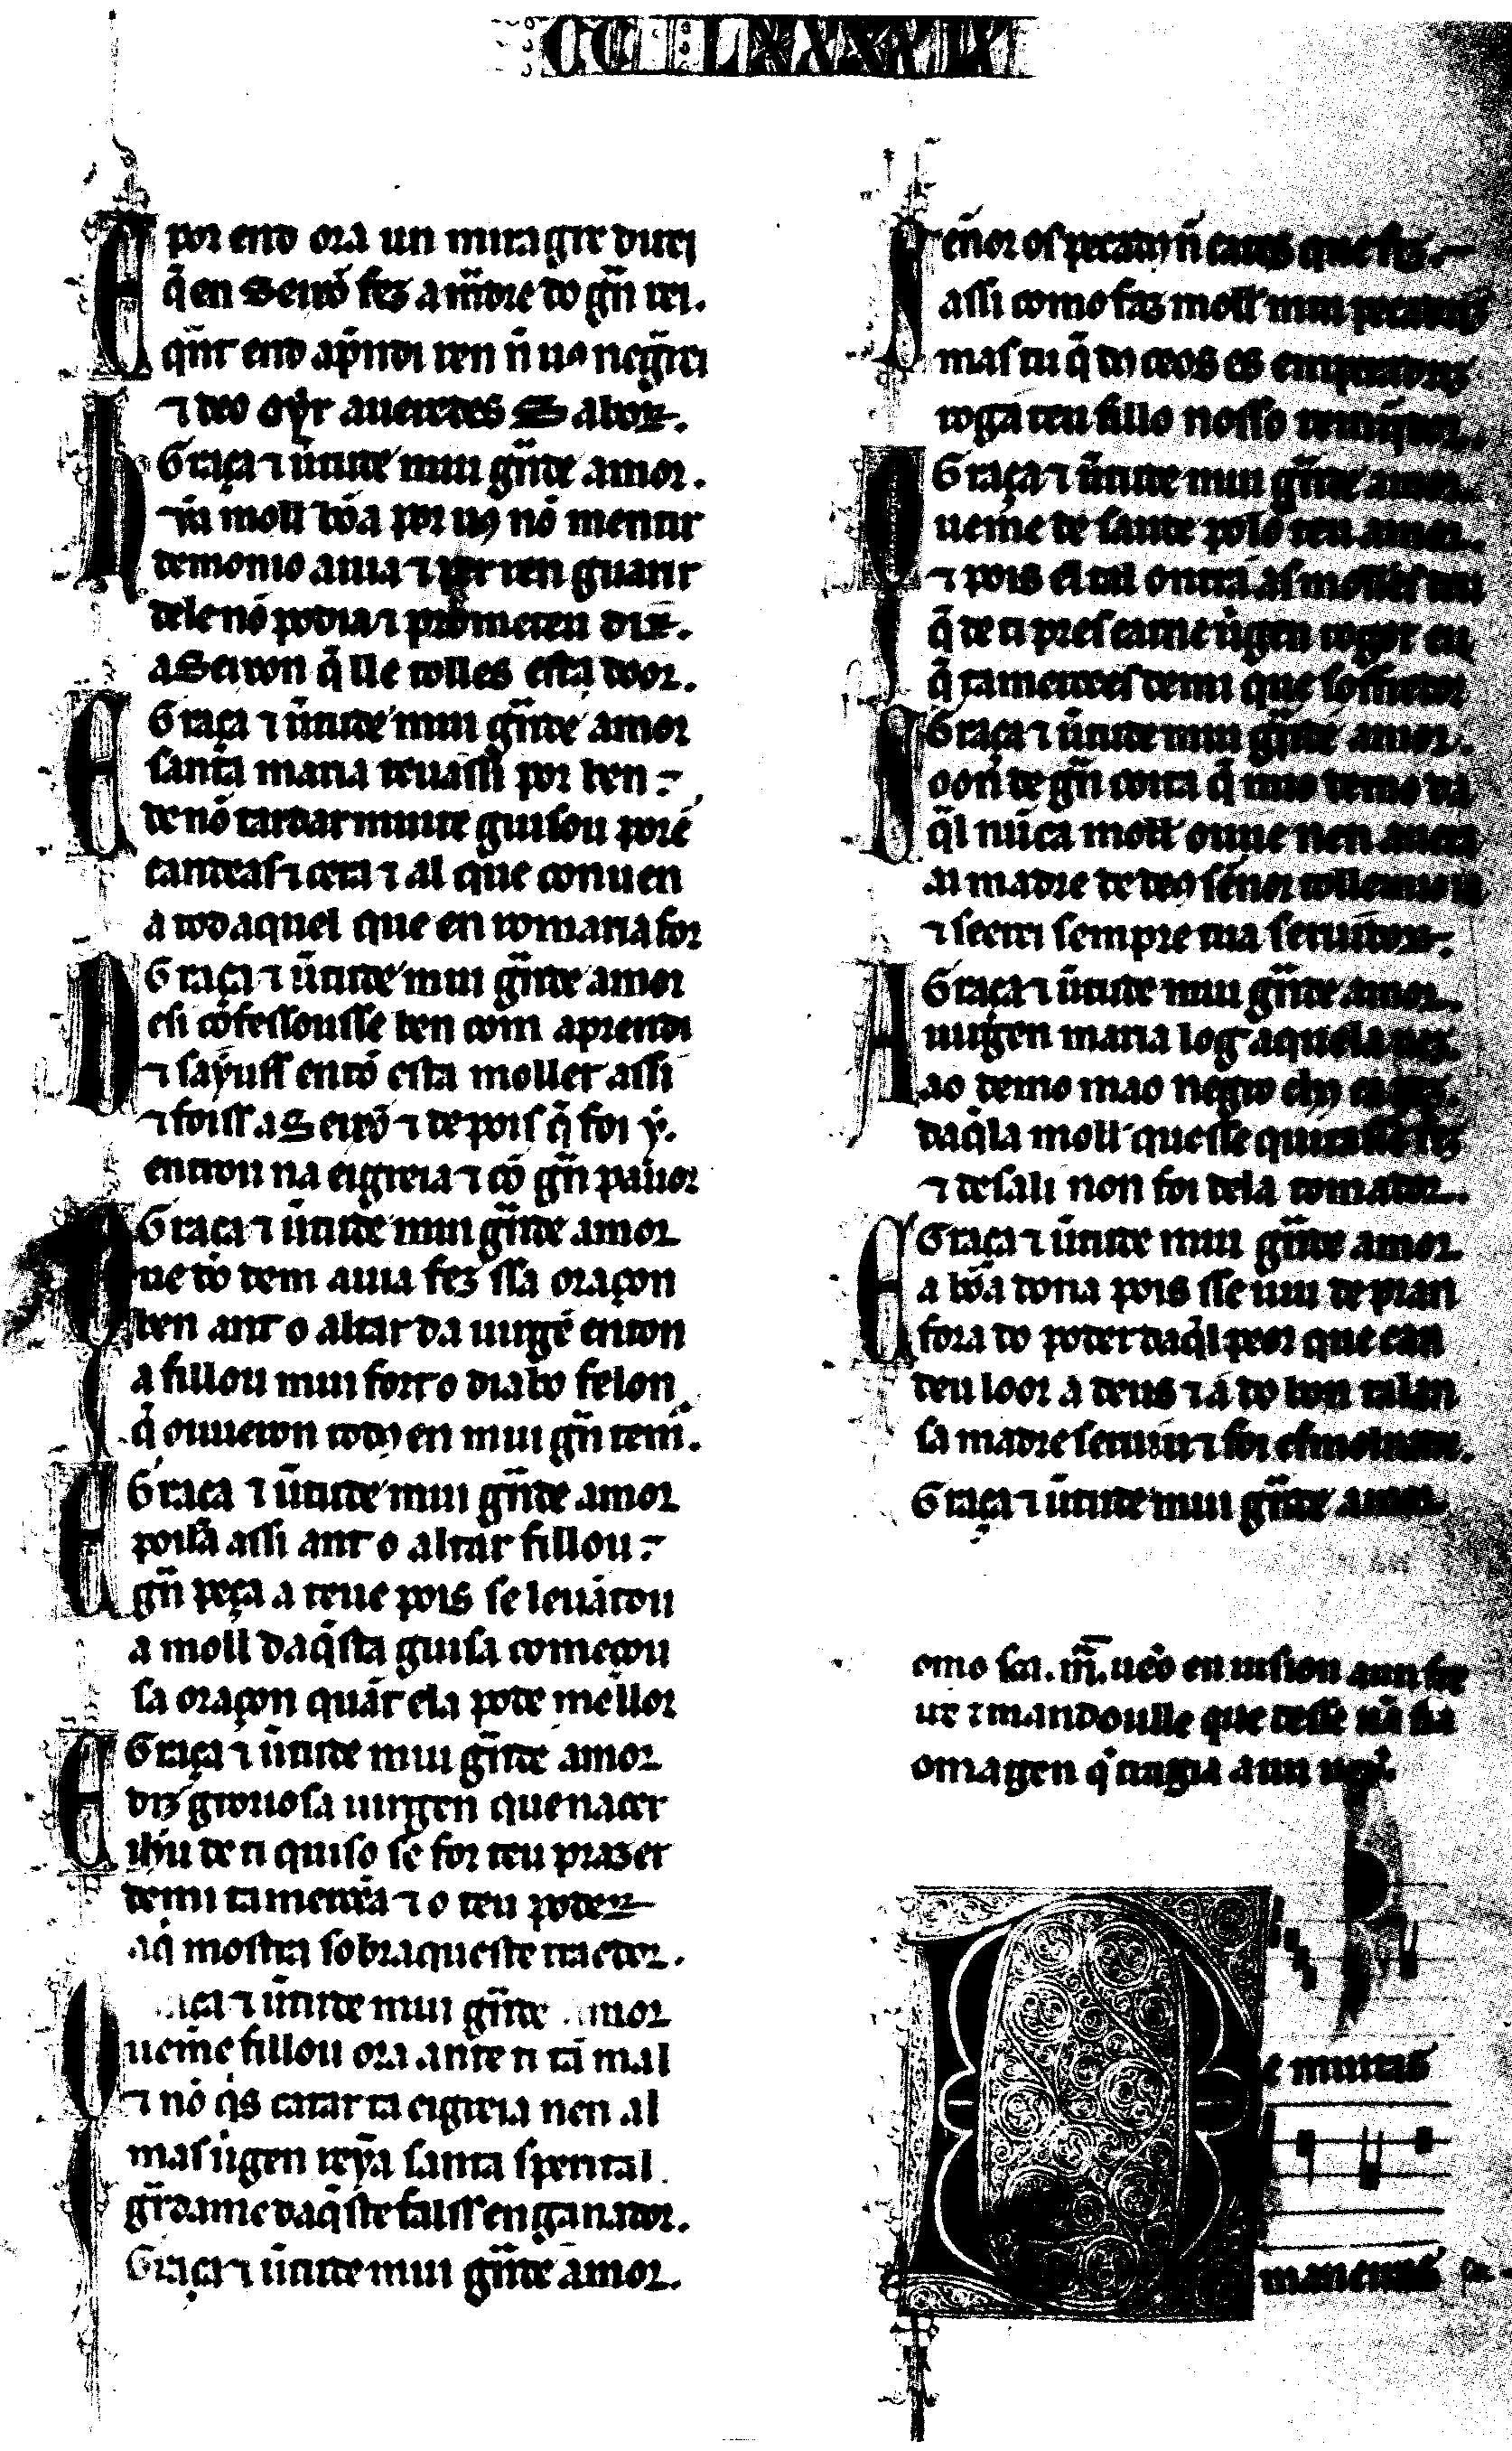 CC LXXXXIX
E por end ora un miragre direi
q̃ en Seirõ fez a m̃dre do gr̃n rei.
qñt end ap̃ndi ren ñ uꝯ neg̃rei
⁊ deo oyr aueredes Sabor.
Graça ⁊ ũtude mui gr̃nde amor.
h ũa moll bõa por uꝯ nõ mentir
demonio auia ⁊ per ren guarir
dele nõ podia ⁊ prometeu dir.
a Seiron q̃ lle tolles esta door.
Graça ⁊ ũtude mui gr̃nde amor
E santa maria teuassi por ben
de nõ tardar muite guisou porẽ
candeas ⁊ cera ⁊ al que conuen
a tod aquel que en romaria for
Graça ⁊ ũtude mui gr̃nde amor
D esi cõfessousse ben com aprendi
⁊ sayuss entõ esta moller assi
⁊ foiss a Seirõ ⁊ depois q̃ foi y.
entrou na eigreia ⁊ cõ gr̃n pauor
Graça ⁊ ũtude mui gr̃nde amor
Q ue do dem auia fez ssa oraçon
ben ant o altar da uirgẽ enton
a fillou mui forto diabo felon
q̃ ouueron todꝯ en mui gr̃n tem̃.
Graça ⁊ ũtude mui gr̃nde amor
E poila assi ant o altar fillou
gr̃n peça a teue pois se leuãtou
a moll daq̃sta guisa começou
sa oraçon quãt ela pode mellor
Graça ⁊ ũtude mui gr̃nde amor
E diz groriosa uirgen que nacer
ihũ de ti quiso se for teu prazer
de mi tamercea ⁊ o teu poder
aq̃ mostra sobraqueste traedor.
aça ⁊ ũtude mui gr̃nde amor
Q ueme fillou ora ante ti tã mal
⁊ nõ q̃s catar ta eigreia nen al
mas ũgen reỹa santa sperital
gr̃dame daq̃ste falss enganador.
Graça ⁊ ũtude mui gr̃nde amor.
S eñor os pecadꝯ ñ cates que fiz.
assi como faz moll mui pecadriz
mas tu q̃ dꝯ ceos es emperadriz
roga teu fillo nosso remĩdor.
Graça ⁊ ũtude mui gr̃nde amor.
Q ueme de saude polo teu amor.
⁊ pois el tal onrra as molleres deu
q̃ de ti pres carne ũgen rogot eu
q̃ tamerçees de mi que soffredor
Graça ⁊ ũtude mui gr̃nde amor.
S oon de gr̃n coita q̃ tuo demo da
q̃l nũca moll ouue nen auera
ai madre de deꝯ señor tollemio ia
⁊ seerei sempre tua seruidor.
Graça ⁊ ũtude mui gr̃nde amor.
A uirgen maria log aquela uez.
ao demo mao negro chꝯ
daq̃la moll quesse quitasse fez
⁊ desali non foi dela tomador.
Graça ⁊ ũtude mui gr̃nde amor
E a bõa dona pois sse uiu de pran
fora do poder daq̃l peor que can
deu loor a deus ⁊ a do bon talan
sa madre seruiu ⁊ foi
Graça ⁊ ũtude mui gr̃nde amor
omo sc̃a. m̃. uẽo en uision a un frei
re ⁊ mandoulle que desse hũa ssa
omagen q̃ tragia a un
D e muitas
maneiras